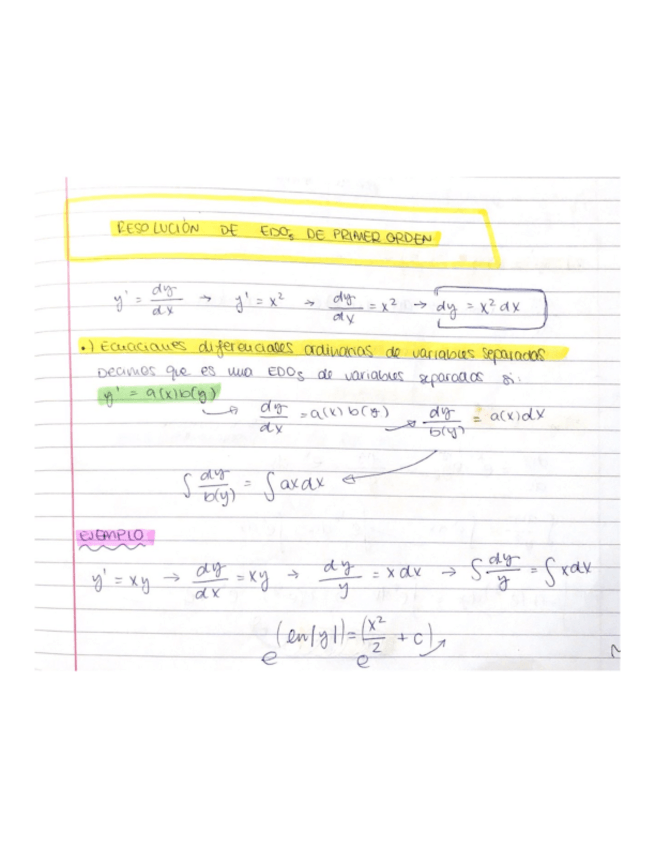 RESOLUCIÓN DE EDOs DE PRIMER ORDEN
y' = dy/dx → y' = x² → dy/dx = x² → dy = x² dx
•) Ecuaciones diferenciales ordinarias de variables separadas
Decimos que es una EDOs de variables separadas si:
y' = a(x)b(y)
dy/dx = a(x) b(y) → dy/b(y) = a(x)dx
∫ dy/b(y) = ∫ axdx
EJEMPLO
y' = xy → dy/dx = xy → dy/y = x dx → ∫ dy/y = ∫ xdx
e^(ln|y|) = e^(x²/2 + c)